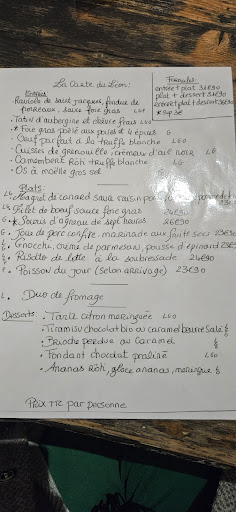 La Carte du Léon:
Formules:
entrée + plat 31€90
plat + dessert 31€90
entrée + plat + dessert 36€90
* sup 3€
Entrées
Raviole de saint jacques, fondue de
poireaux, sauce foie gras LGO
• Tatin d'aubergine et chèvre frais LGO
• * Foie gras poêlé aux poires et 4 épices G
• Oeuf parfait à la truffe blanche LGO
• Cuisses de grenouille, crémeux d'ail noir LG
• Camembert Rôti truffe blanche LG
• Os à moëlle gros sel G
Plats:
LG Magret de canard sauce raisin
LG Filet de boeuf sauce foie gras
* Souris d'agneau de sept heures 26€90
G. Joue de porc confite, marinade aux fruits secs 23€90
Gnocchi, crème de parmesan, pousse d'épinard
Risotto de lotte à la soubressade 24€90
Poisson du jour (selon arrivage) 23€90
L. Duo de fromage
Desserts: • Tarte citron meringuée LGO
• Tiramisu chocolat bio au caramel beurre salé
• Brioche perdue au Caramel
• Fondant chocolat praliné LGO
• Ananas Rôti, glace ananas, meringue
Prix TTC par personne